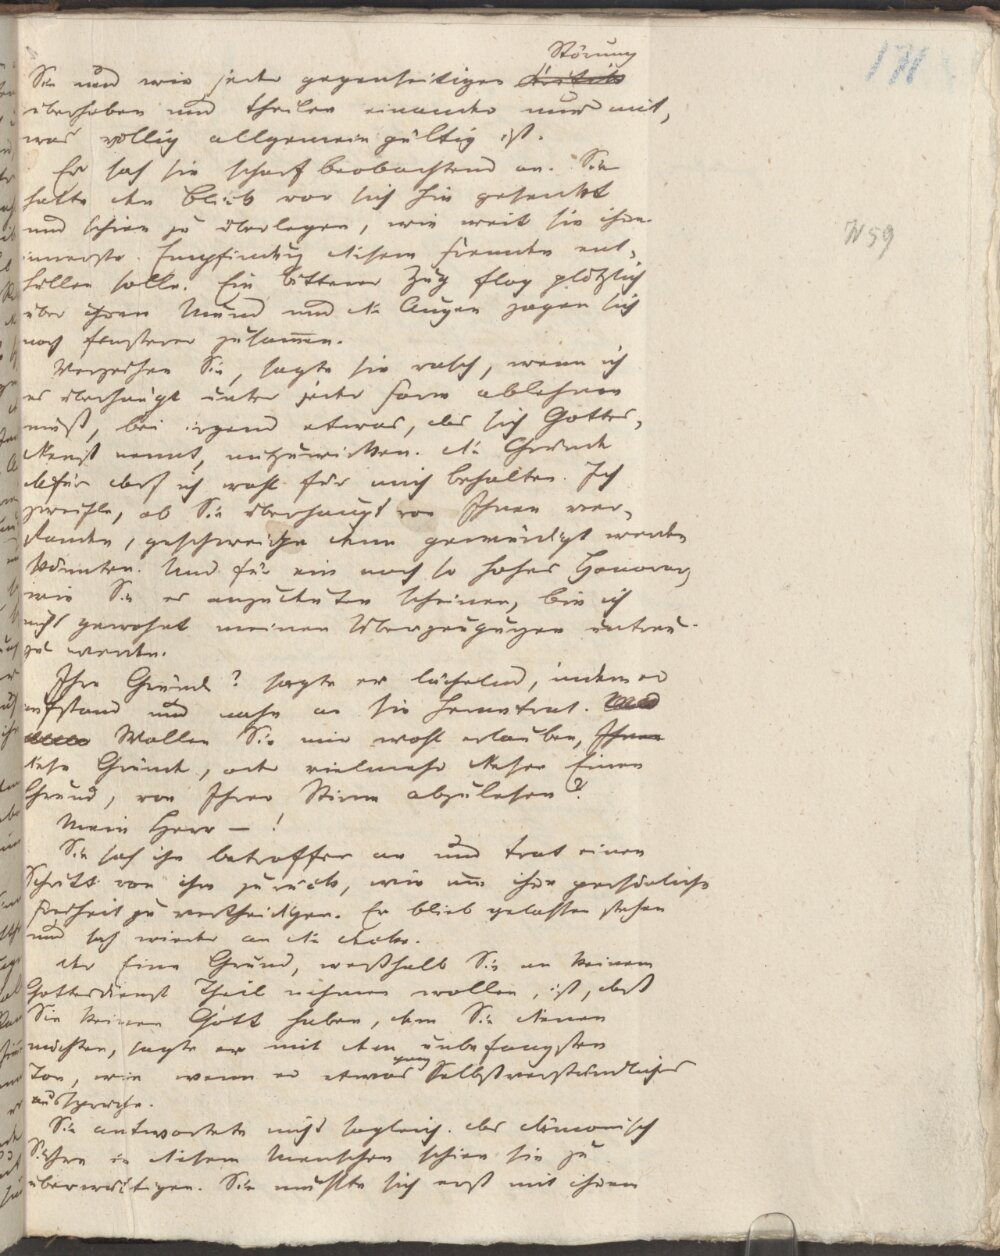 171
Störung
Sie und wir jeder gegenseitigen
überheben und theilen einander nur mit,
was völlig allgemein gültig ist.
Er sah sie scharf beobachtend an. Sie
hatte den Blick vor sich hin gesenkt
und schien zu überlegen, wie weit sie ihre
innerste Empfindung diesem Fremden ent-
hüllen solle. Ein bitterer Zug flog plötzlich
über ihren Mund und die Augen zogen sich
noch finsterer zusammen.
N 59
Verzeihen Sie, sagte sie rasch, wenn ich
es überhaupt unter jeder Form ablehnen
muß, bei irgend etwas, das sich Gottes-
dienst nennt, mitzuwirken. Die Gründe
dafür darf ich wohl für mich behalten. Ich
zweifle, ob Sie überhaupt von Ihnen ver-
standen, geschweige denn gewürdigt werden
könnten. Und für ein noch so hohes Honorar,
wie Sie es anzudeuten scheinen, bin ich
nicht gewohnt meinen Überzeugungen untreu
zu werden.
Ihre Gründe? sagte er lächelnd, indem er
aufstand und nahe an sie herantrat. Und
Wollen Sie mir wohl erlauben, Ihnen
diese Gründe, oder vielmehr diesen Einen
Grund, von Ihrer Stirn abzulesen?
Mein Herr — !
Sie sah ihn betroffen an und trat einen
Schritt von ihm zurück, wie um ihre persönliche
Freiheit zu vertheidigen. Er blieb gelassen stehen
und sah wieder an die Decke.
Der Eine Grund, weßhalb Sie an keinem
Gottesdienst Theil nehmen wollen, ist, daß
Sie keinen Gott haben, dem Sie dienen
möchten, sagte er mit dem unbefangsten
Ton, wie wenn er etwas ganz Selbstverständliches
ausspräche.
Sie antwortete nicht sogleich. Das dämonisch
Sichre in diesem Menschen schien sie zu
überwältigen. Sie mußte sich erst mit ihrem